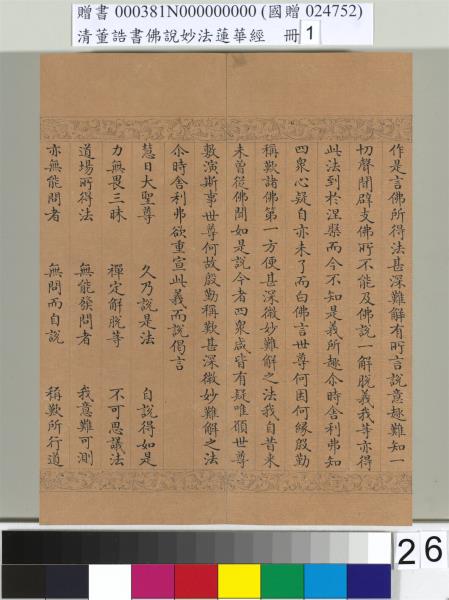 贈書 000381N000000000 (國贈 024752)
清董誥書佛說妙法蓮華經 冊 1
作是言佛所得法甚深難解有所言說意趣難知一
切聲聞辟支佛所不能及佛說一解脫義我等亦得
此法到於涅槃而今不知是義所趣尒時舍利弗知
四衆心疑自亦未了而白佛言世尊何因何緣殷勤
稱歎諸佛第一方便甚深微妙難解之法我自昔來
未曾從佛聞如是說今者四衆咸皆有疑唯願世尊
敷演斯事世尊何故殷勤稱歎甚深微妙難解之法
尒時舍利弗欲重宣此義而說偈言
慧日大聖尊 久乃說是法 自說得如是
力無畏三昧 禪定解脫等 不可思議法
道場所得法 無能發問者 我意難可測
亦無能問者 無問而自說 稱歎所行道
26